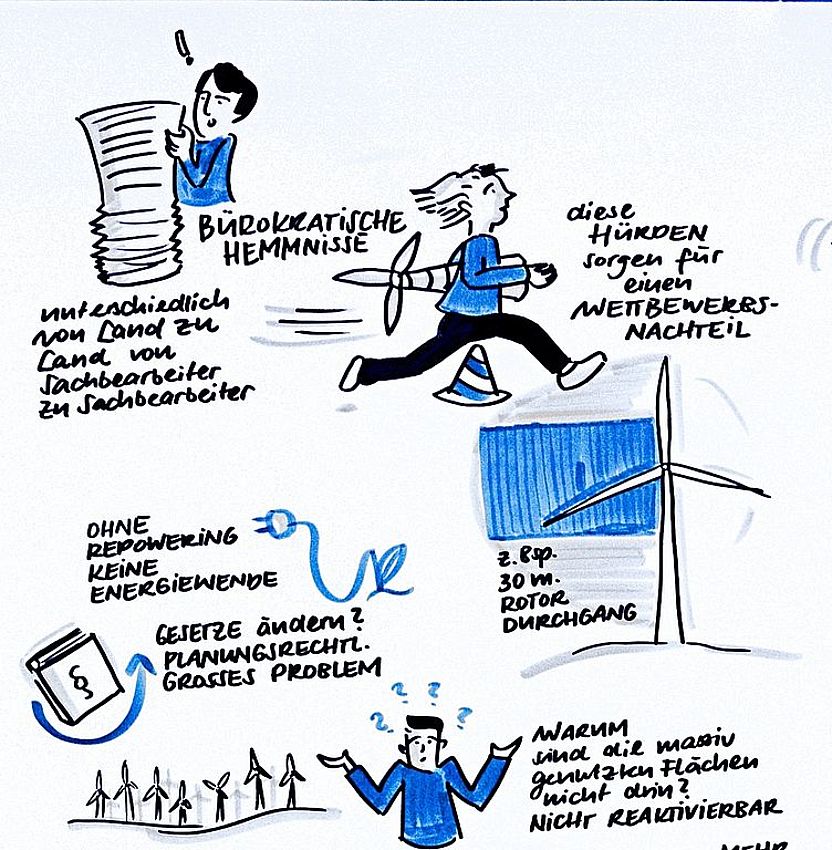 !
BÜROKRATISCHE
HEMMNISSE
unterschiedlich
von Land zu
Land von
Sachbearbeiter
zu Sachbearbeiter
diese
HÜRDEN
sorgen für
einen
WETTBEWERBS-
NACHTEIL
z.Bsp.
30 m.
ROTOR
DURCHGANG
OHNE
REPOWERING
KEINE
ENERGIEWENDE
GESETZE ändern?
PLANUNGSRECHTL.
GROSSES PROBLEM
§
? ? ? ?
WARUM
sind die massiv
genutzten Flächen
nicht drin?
NICHT REAKTIVIERBAR
MEHR